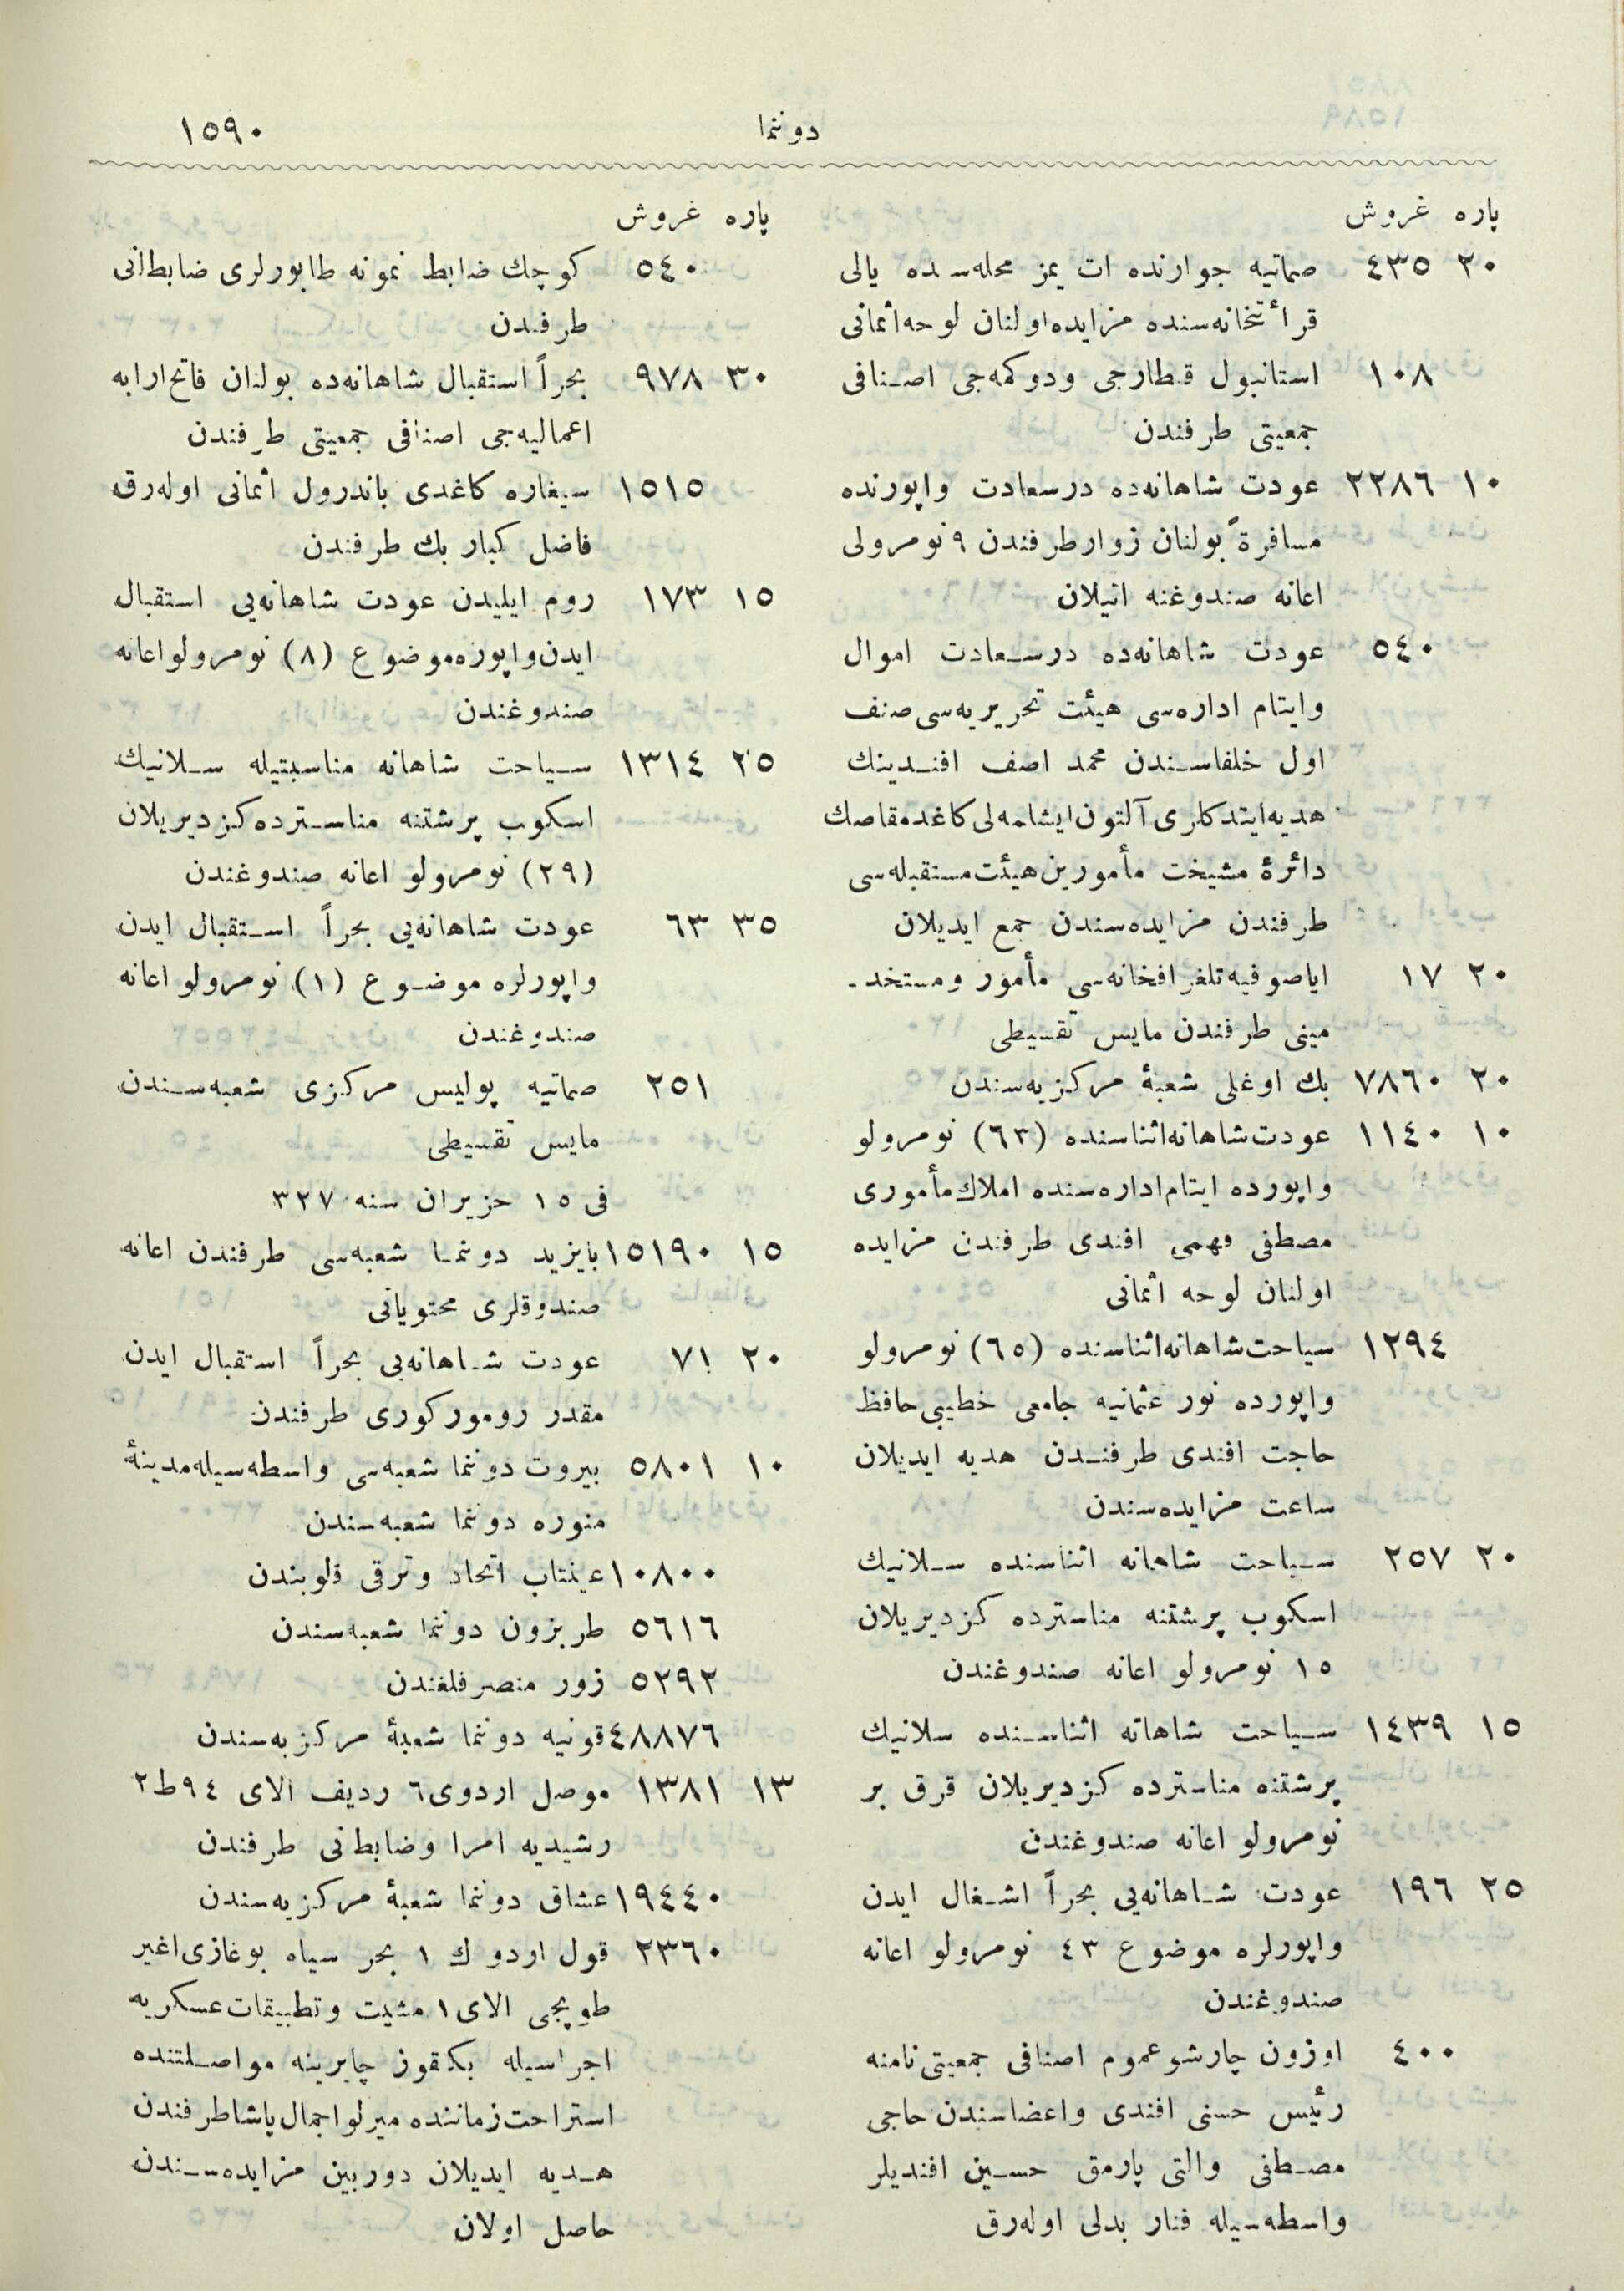 ١٥٩٠
دوننما
پاره غروش
٢٠ ٤٣٥ صماتیه جوارنده ات یمز محله‌سده یالی
قرأتخانه‌سنده مزایده اولنان لوحه اثمانی
١٠٨ استانبول قطارجی ودوکمه‌جی اصنافی
جمعیتی طرفندن
١٠ ٢٢٨٦ عودت شاهانه‌ده درسعادت واپورنده
مسافرةً بولنان زوار طرفندن ٩ نومرولی
اعانه صندوغنه اتیلان
٥٤٠ عودت شاهانه‌ده درسعادت اموال
وایتام اداره‌سی هیئت تحریریه‌سی صنف
اول خلفاسندن محمد اصف افندینك
هدیه ایتدکلری آلتون ایشامه‌لی کاغد مقاصك
دائرهٔ مشیخت مأمورین هیئت مستقبله‌سی
طرفندن مزایده‌سندن جمع ایدیلان
٢٠ ١٧ ایاصوفیه تلغرافخانه‌سی مأمور ومستخد-
مینی طرفندن مایس تقسیطی
٢٠ ٧٨٦٠ بك اوغلی شعبهٔ مرکزیه‌سندن
١٠ ١١٤٠ عودت شاهانه اثناسنده (٦٣) نومرولو
واپورده ایتام اداره‌سنده املاك مأموری
مصطفی فهمی افندی طرفندن مزایده
اولنان لوحه اثمانی
١٢٩٤ سیاحت شاهانه اثناسنده (٦٥) نومرولو
واپورده نور عثمانیه جامعی خطیبی حافظ
حاجت افندی طرفندن هدیه ایدیلان
ساعت مزایده‌سندن
٢٠ ٢٥٧ سیاحت شاهانه اثناسنده سلانیك
اسکوب پرشتنه مناسترده کزدیریلان
١٥ نومرولو اعانه صندوغندن
١٥ ١٤٣٩ سیاحت شاهانه اثناسنده سلانیك
پرشتنه مناسترده کزدیریلان قرق بر
نومرولو اعانه صندوغندن
٢٥ ١٩٦ عودت شاهانه‌یی بحراً اشغال ایدن
واپورلره موضوع ٤٣ نومرولو اعانه
صندوغندن
٤٠٠ اوزون چارشو عموم اصنافی جمعیتی نامنه
رئیس حسنی افندی واعضاسندن حاجی
مصطفی والتی پارمق حسین افندیلر
واسطه‌سیله فنار بدلی اوله‌رق
پاره غروش
٥٤٠ کوچك ضابط نمونه طابورلری ضابطانی
طرفندن
٣٠ ٩٧٨ بحراً استقبال شاهانه‌ده بولنان فاتح ارابه
اعمالیه‌جی اصنافی جمعیتی طرفندن
١٥١٥ سیغاره کاغدی باندرول اثمانی اوله‌رق
فاضل کبار بك طرفندن
١٥ ١٧٣ روم ایلیدن عودت شاهانه‌یی استقبال
ایدن واپوره موضوع (٨) نومرولو اعانه
صندوغندن
٢٥ ١٣١٤ سیاحت شاهانه مناسبتیله سلانیك
اسکوب پرشتنه مناسترده کزدیریلان
(٢٩) نومرولو اعانه صندوغندن
٣٥ ٦٣ عودت شاهانه‌یی بحراً استقبال ایدن
واپورلره موضوع (١) نومرولو اعانه
صندوغندن
٢٥١ صماتیه پولیس مرکزی شعبه‌سندن
مایس تقسیطی
فی ١٥ حزیران سنه ٣٢٧
١٥ ١٥١٩٠ بایزید دوننما شعبه‌سی طرفندن اعانه
صندوقلری محتویاتی
٢٠ ٧١ عودت شاهانه‌یی بحراً استقبال ایدن
مقدر رومورکوری طرفندن
١٠ ٥٨٠١ بیروت دوننما شعبه‌سی واسطه‌سیله مدینهٔ
منوره دوننما شعبه‌سندن
١٠٨٠٠ عینتاب اتحاد وترقی قلوبندن
٥٦١٦ طربزون دوننما شعبه‌سندن
٥٢٩٢ زور متصرفلغندن
٤٨٨٧٦ قونیه دوننما شعبهٔ مرکزیه‌سندن
١٣ ١٣٨١ موصل اردوی ٦ ردیف الای ٩٤ ط ٢
رشیدیه امرا وضابطانی طرفندن
١٩٤٤٠ عشاق دوننما شعبهٔ مرکزیه‌سندن
٢٣٦٠ قول اردو ك ١ بحر سیاه بوغازی اغیر
طوپجی الای ١ مثبت وتطبیقات عسکریه
اجراسیله بکقوز چایرینه مواصلتنده
استراحت زماننده میرلوا جمال پاشا طرفندن
هدیه ایدیلان دوربین مزایده‌سندن
حاصل اولان